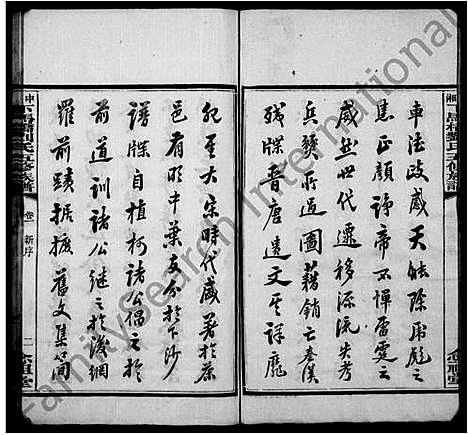 車法政咸天能除虎彪之
焦正顏諍帝不憚雷霆之
威然世代遷移源流失考
兵燹所過圖籍銷亡秦漢
殘牒晉唐遺文其詳靡
紀至大宋時代咸著於茶
邑有明中葉支分於下沙
譜牒自植柯諸公倡之於
前道訓諸公繼之於後網
羅前蹟摭摭舊文集簡
卷一 新序
二
念祖堂
FamilySearch International